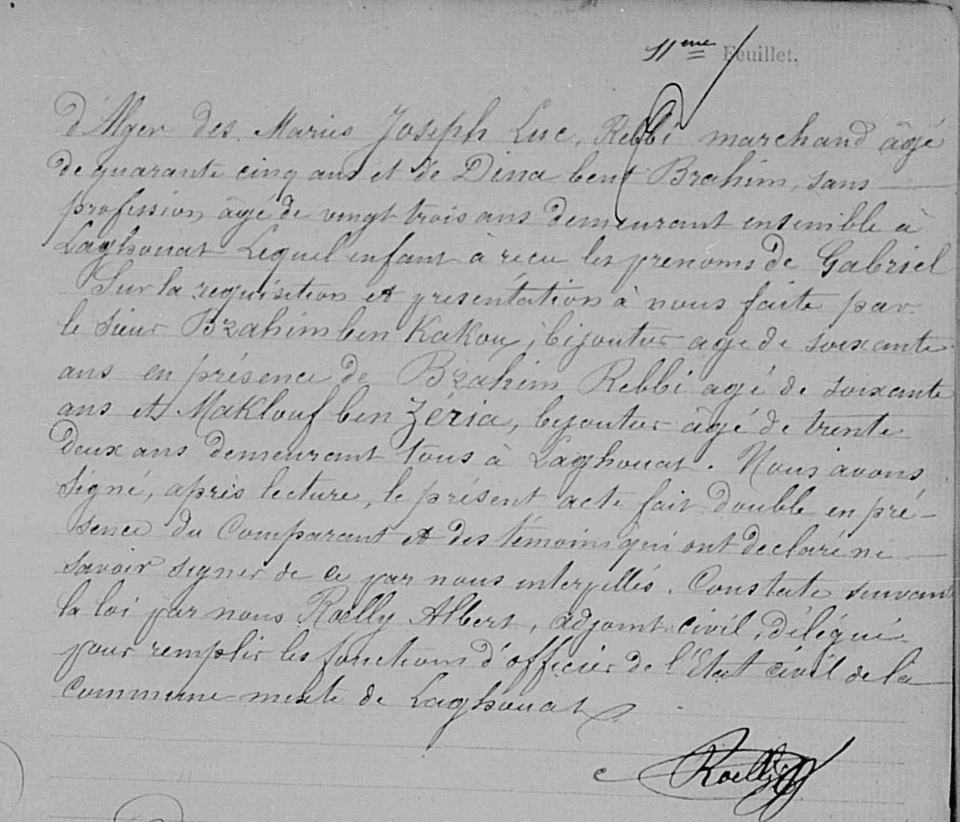 11eme Feuillet.
d'Alger des Marius Joseph Luc, Rebbi marchand âgé
de quarante cinq ans et de Dina bent Brahim, sans
profession âgé de vingt trois ans demeurant ensemble à
Laghouat Lequel enfant à recu les prenoms de Gabriel
Sur la requisition et présentation à nous faite par
le sieur Brahim ben Kakou, bijoutier agé de soixante
ans en présence de Brahim Rebbi agé de soixante
ans et Maklouf ben Zéria, bijoutier âgé de trente
deux ans demeurant tous à Laghouat. Nous avons
signé, après lecture, le présent acte fait double en pré-
sence du Comparant et des témoins qui ont declaré ne
savoir signer de ce par nous interpellés. Constate suivant
la loi par nous Roelly Albert, adjoint civil, délégué
pour remplir les fonctions d'officier de l'Etat civil de la
commune mixte de Laghouat
Roelly